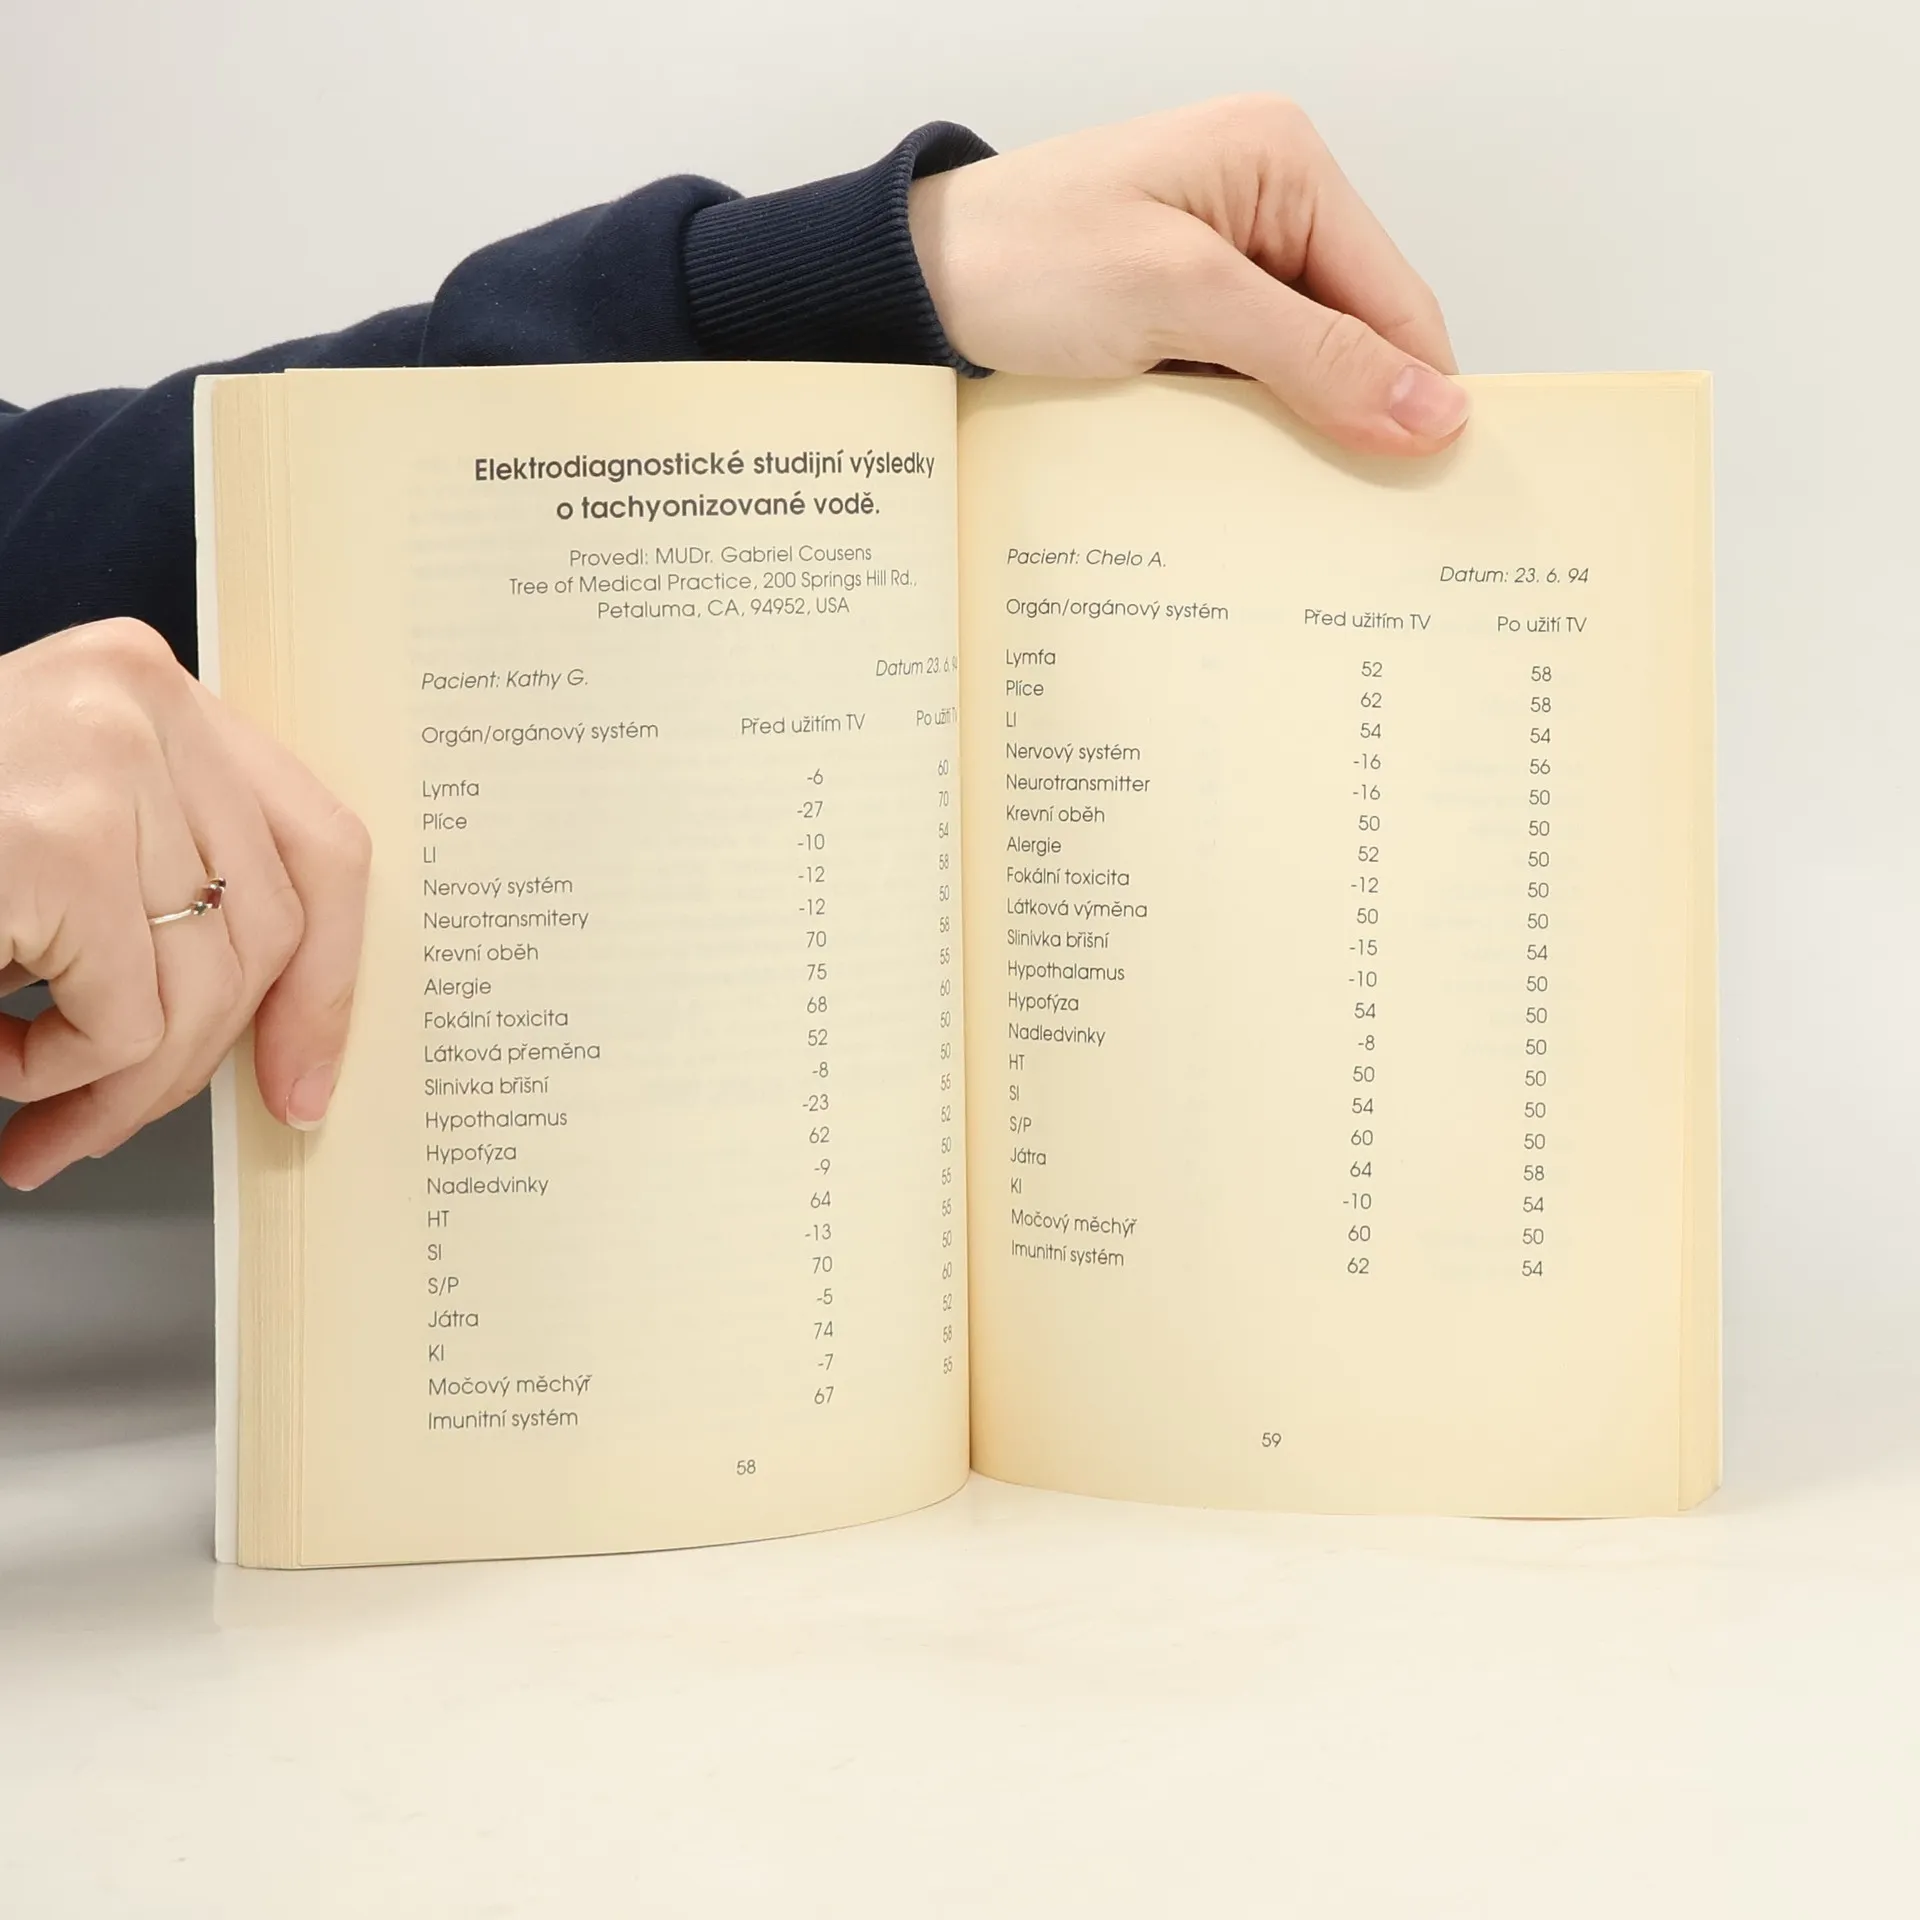 Elektrodiagnostické studijní výsledky
o tachyonizované vodě.
Provedl: MUDr. Gabriel Cousens
Tree of Medical Practice, 200 Springs Hill Rd.,
Petaluma, CA, 94952, USA
Pacient: Kathy G. Datum 23. 6. 94
Orgán/orgánový systém Před užitím TV Po užití TV
Lymfa -6 60
Plíce -27 70
LI -10 54
Nervový systém -12 58
Neurotransmitery -12 50
Krevní oběh 70 58
Alergie 75 55
Fokální toxicita 68 60
Látková přeměna 52 50
Slinivka břišní -8 50
Hypothalamus -23 55
Hypofýza 62 52
Nadledvinky -9 50
HT 64 55
SI -13 55
S/P 70 50
Játra -5 60
KI 74 52
Močový měchýř -7 58
Imunitní systém 67 55
58
Pacient: Chelo A. Datum: 23. 6. 94
Orgán/orgánový systém Před užitím TV Po užití TV
Lymfa 52 58
Plíce 62 58
LI 54 54
Nervový systém -16 56
Neurotransmitter -16 50
Krevní oběh 50 50
Alergie 52 50
Fokální toxicita -12 50
Látková výměna 50 50
Slinivka břišní -15 54
Hypothalamus -10 50
Hypofýza 54 50
Nadledvinky -8 50
HT 50 50
SI 54 50
S/P 60 50
Játra 64 58
KI -10 54
Močový měchýř 60 50
Imunitní systém 62 54
59